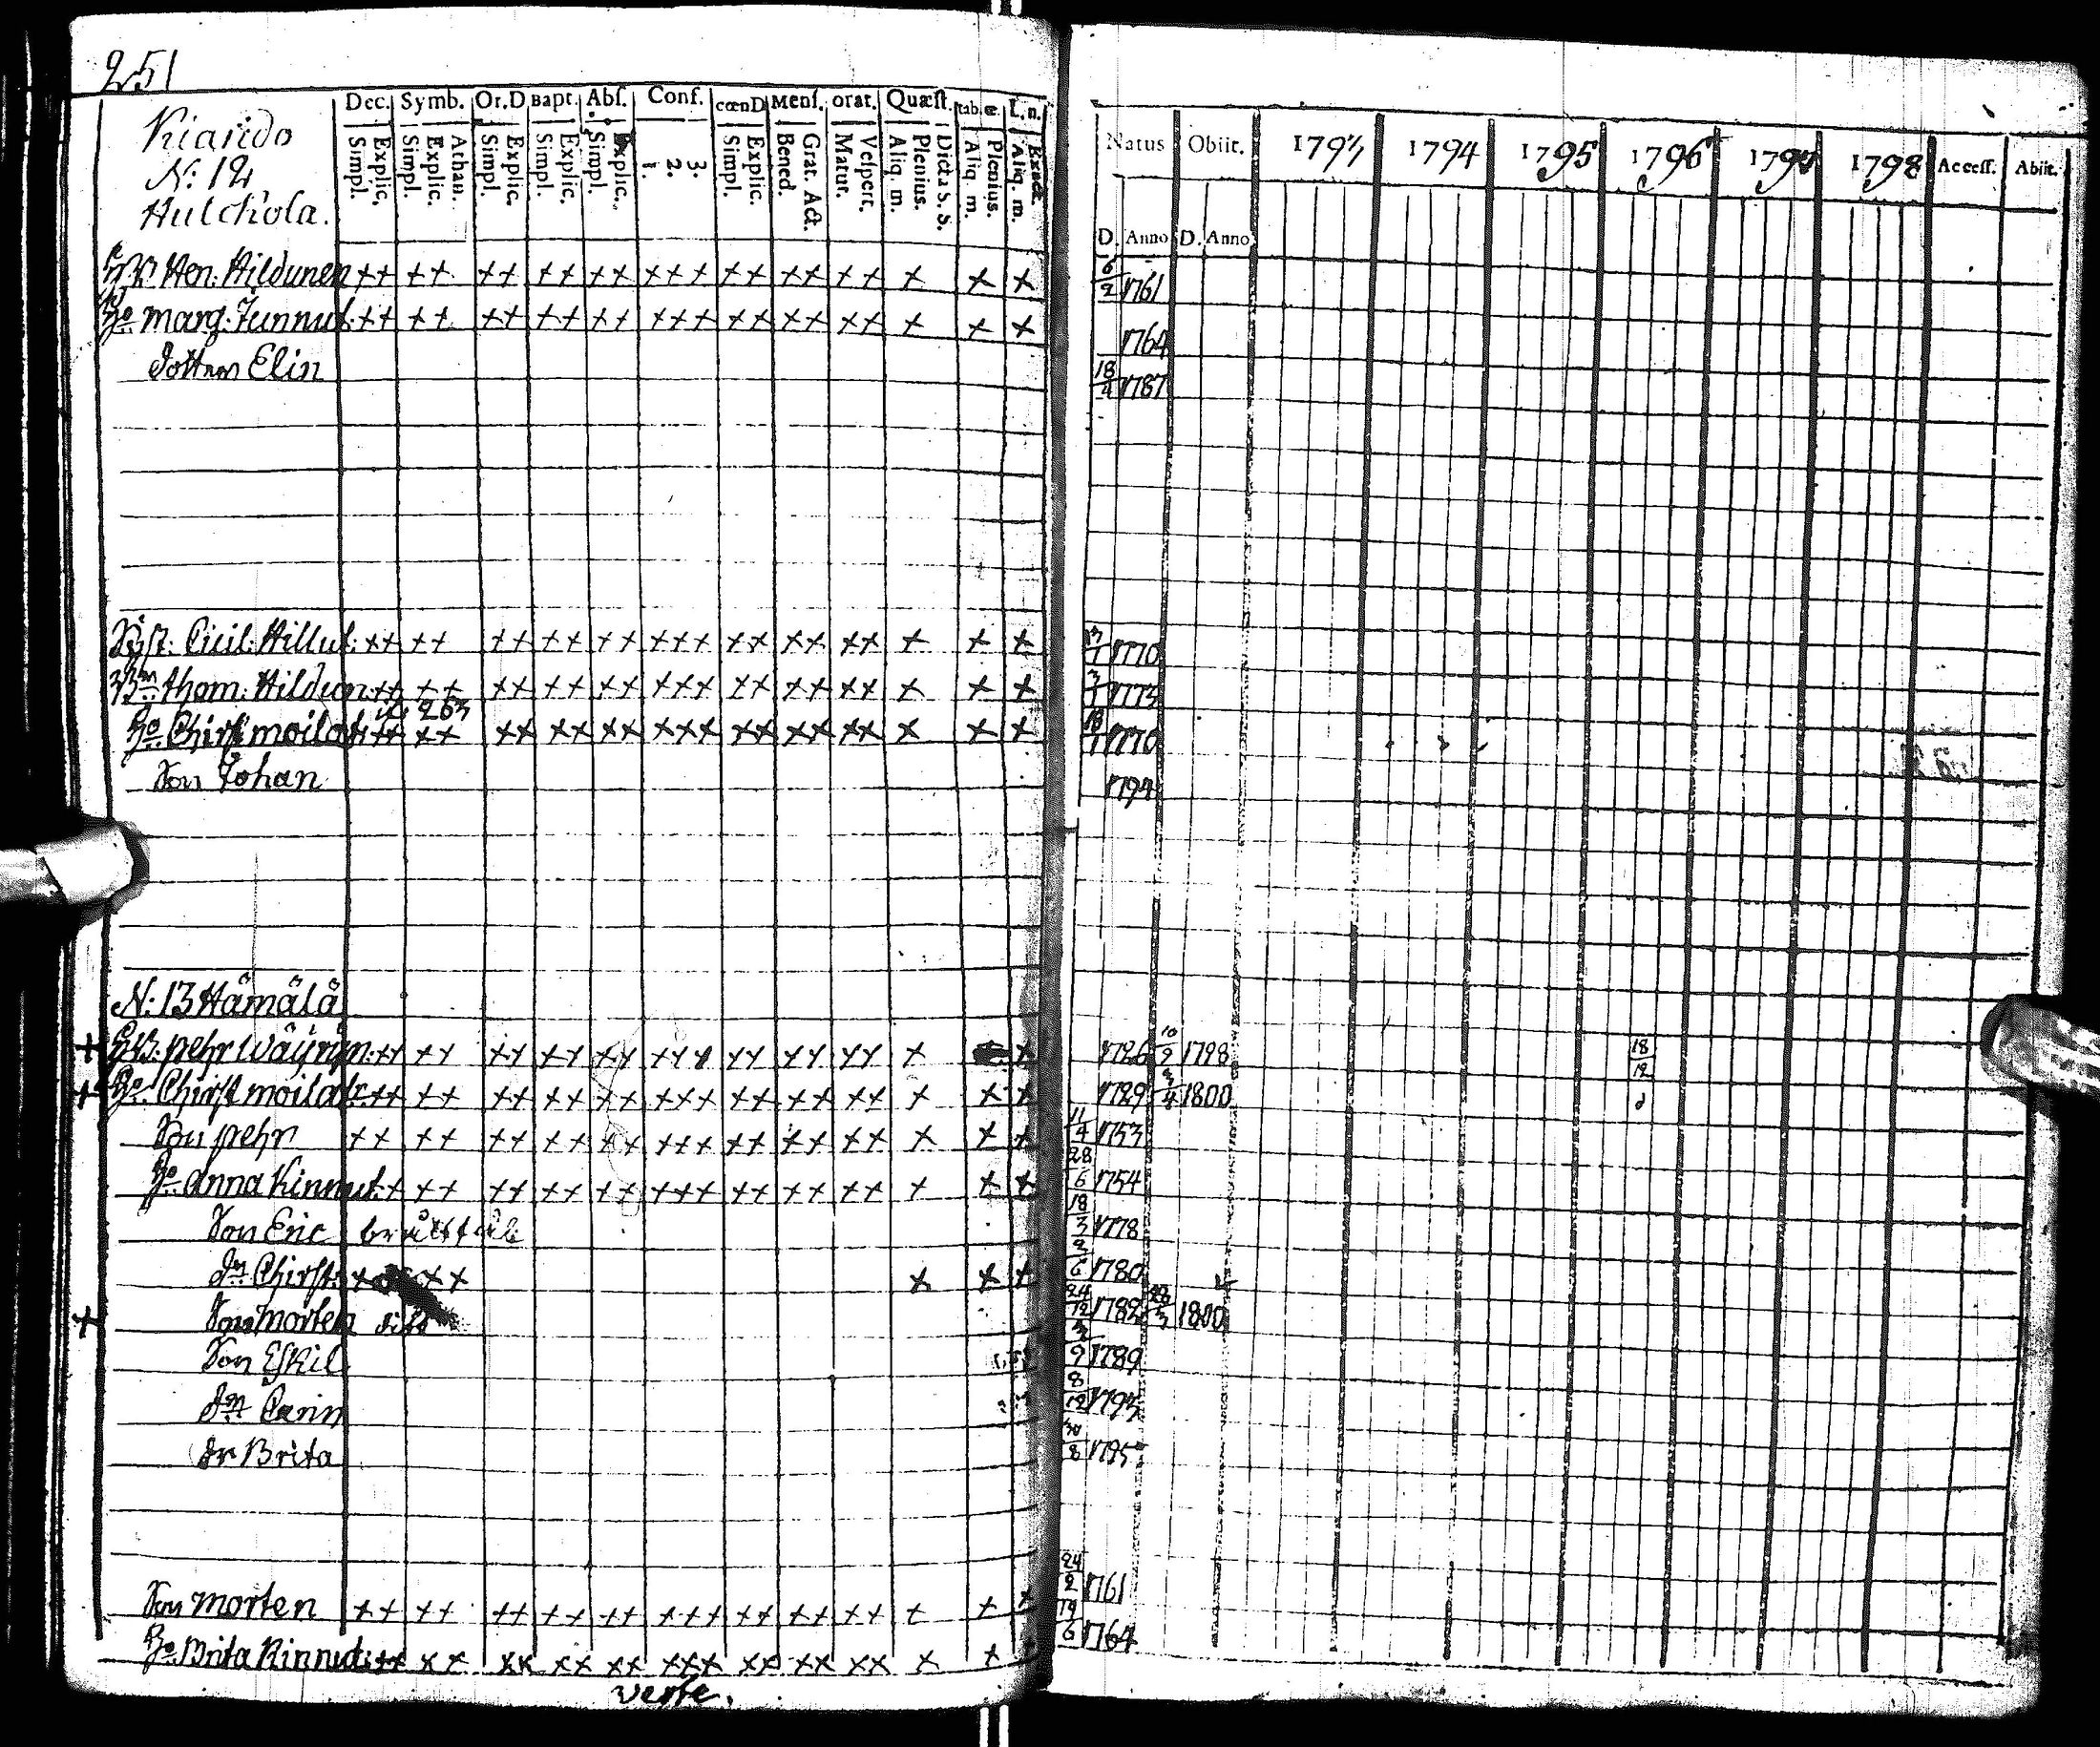 251
Kiando
N: 12
Hulckola.
Dec. Symb. Or.D Bapt. Abs. Conf. cœnD Mens. orat. Quæst. tab.œ. L.n.
Simpl. Explic. Simpl. Explic. Athan. Simpl. Explic. Simpl. Explic. Simpl. Explic. 1. 2. 3. Simpl. Explic. Bened. Grat. Act. Matut. Vespert. Aliq. m. Plenius. Dicta S. S. Aliq. m. Plenius. Aliq. m. Exacte.
Natus Obiit. 1793 1794 1795 1796 1797 1798 Access. Abiit.
D. Anno D. Anno
Hen: Hildunen ++ ++ ++ ++ ++ +++ ++ ++ ++ + + + 6/2 1761
Marg. Junnut. ++ ++ ++ ++ ++ +++ ++ ++ ++ + + + 1764
Elin 18/4 1787
Syst: Cicil: Hillut: ++ ++ ++ ++ ++ +++ ++ ++ ++ + + + 1770
thom: Hildun ++ ++ ++ ++ ++ +++ ++ ++ ++ + + + 1773
263
Hu Chirst moilat: ++ ++ ++ ++ ++ +++ ++ ++ ++ + + + 18/1 1770
Son Johan 1794
N: 13 Hämälä
+ pehr Wäyryn: ++ ++ ++ ++ ++ +++ ++ ++ ++ + + 1726 10/2 1798 18/12
+ Hu Chirst moilat: ++ ++ ++ ++ ++ +++ ++ ++ ++ + + + 1729 1800 d
Son pehr ++ ++ ++ ++ ++ +++ ++ ++ ++ + + + 11/4 1753
Hu Anna Kinnut: ++ ++ ++ ++ ++ +++ ++ ++ ++ + + + 28/6 1754
Son Eric 18/3 1778
Dr Chirst: + ++ + + + 2/6 1780
+ Son morten 24/12 1782 1800
Son Eskil 3/9 1789
Dr Carin 8/12 1793
Dr Brita 30/8 1795
Son Morten ++ ++ ++ ++ ++ +++ ++ ++ ++ + + + 24/2 1761
Hu Brita Kinnut: ++ ++ ++ ++ ++ +++ ++ ++ ++ + + 19/6 1764
verte.